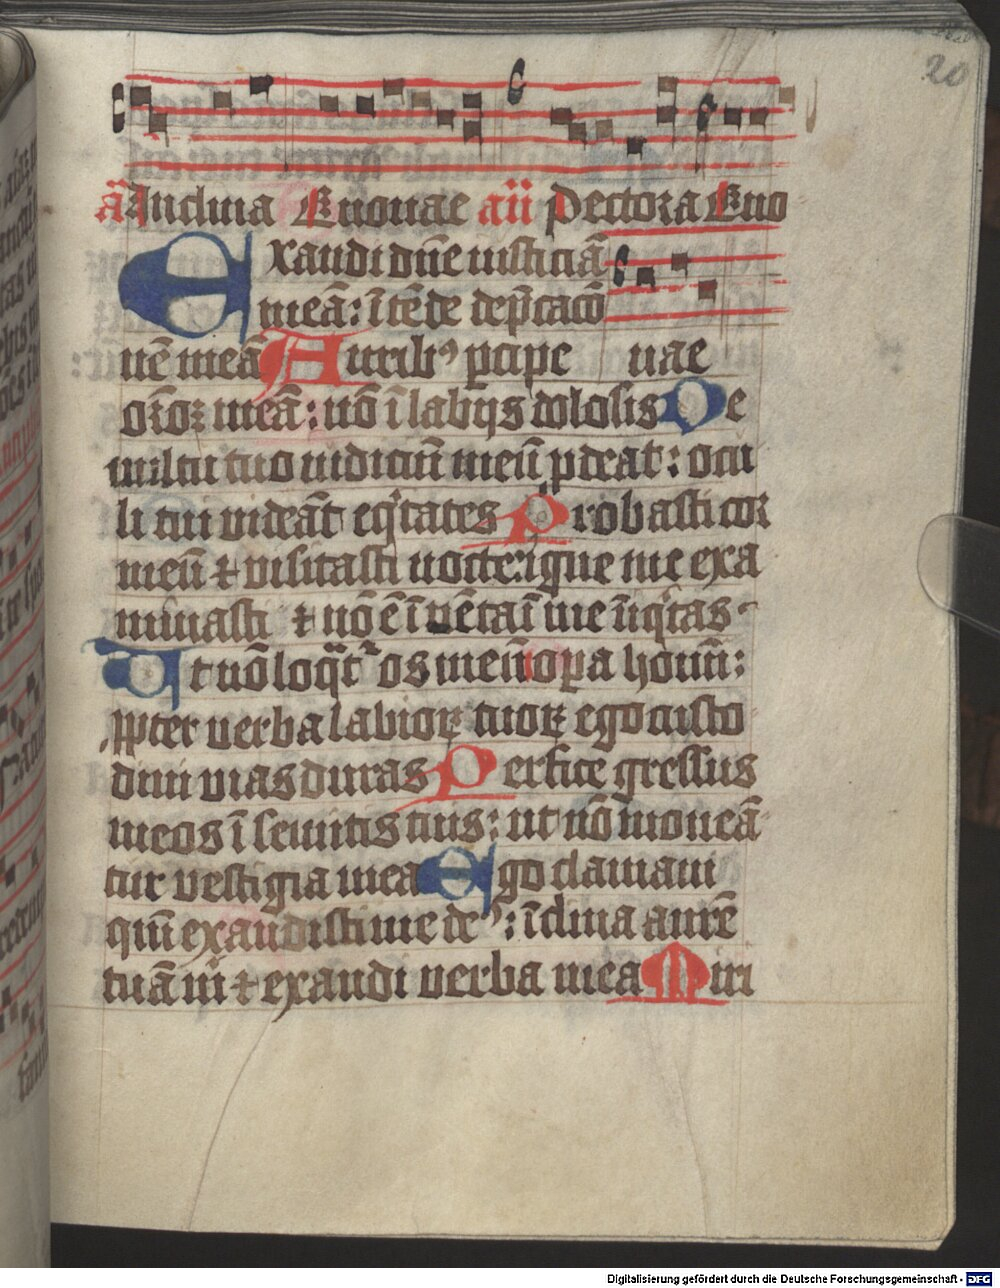 20
añ Inclina Euouae añ Pectora Euo
Exaudi dñe iusticiā
meā: ītēde dep̄cacō
nē meā Aurib9 ꝑcipe uae
orōꝫ meā: nō ī labijs dolosis De
uultu tuo iudiciū meū ꝓdeat: ocu
li tui videāt eq̇tates Probasti cor
meū ⁊ visitasti nocte: igne me exa
minasti ⁊ nō ē īuēta ī me īiq̇tas
Ut nō loq̄t᷑ os meū oꝑa hoīm:
ꝓpter verba labioꝝ tuoꝝ ego custo
diui uias duras Perfice gressus
meos ī semitis tuis: ut nō moueā
tur vestigia mea Ego clamaui
qm̄ exaudisti me de9: īclina aurē
tuā m̄ ⁊ exaudi verba mea Miri
Digitalisierung gefördert durch die Deutsche Forschungsgemeinschaft - DFG